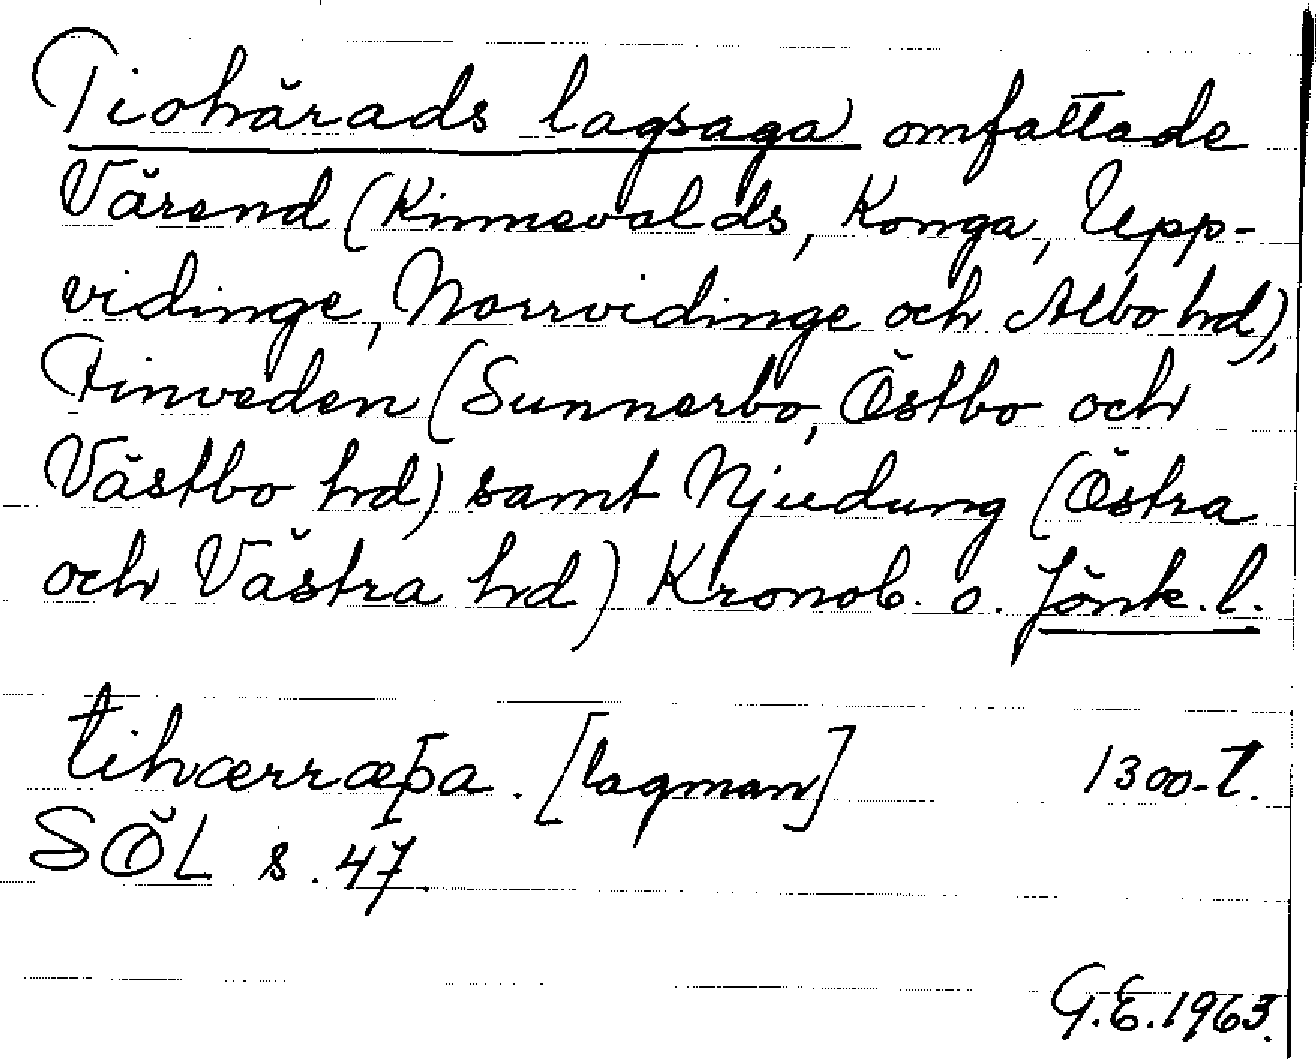 Tiohärads lagsaga omfattade
Värend (Kinnevalds, Konga, Upp-
vidinge, Norrvidinge och Albo hd),
Finveden (Sunnerbo, Östbo och
Västbo hd) samt Njudung (Östra
och Västra hd) Kronob. o. Jönk. l.
tihærræþa. [lagman] 1300-t.
SÖL s. 47.
G.E. 1963.